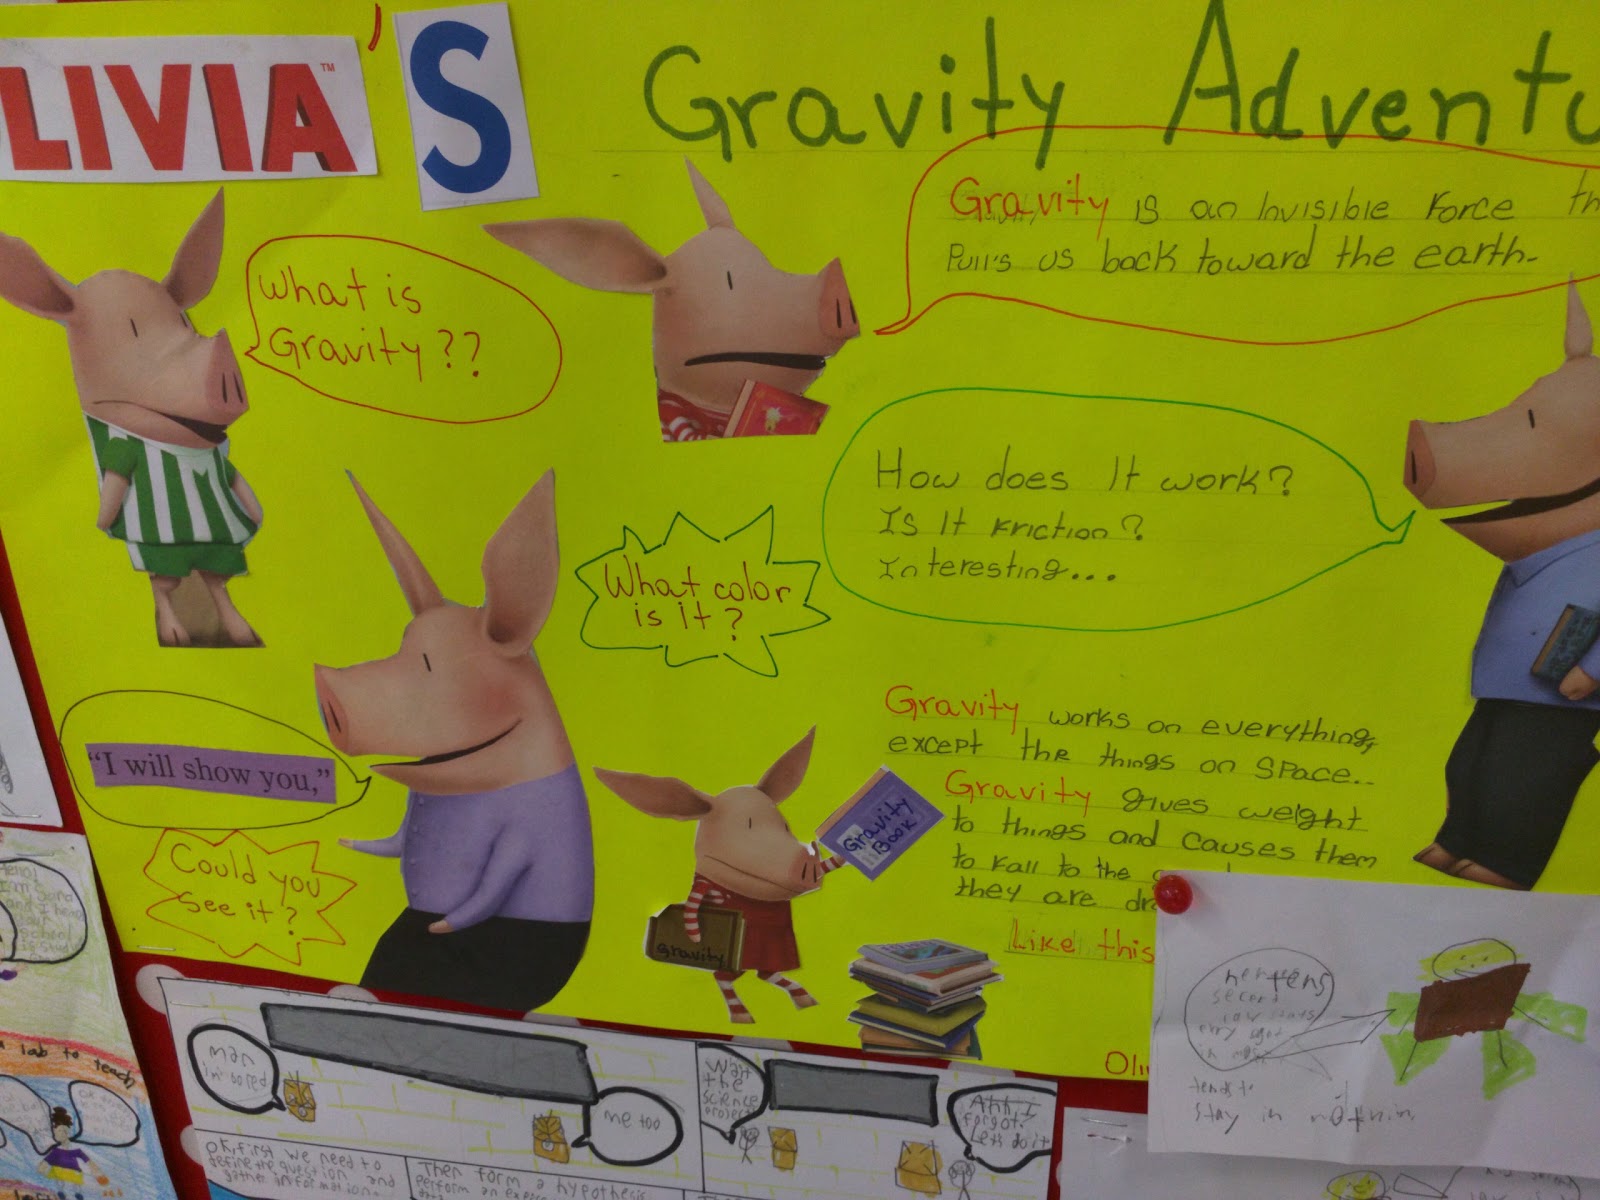 LIVIA™'S
Gravity Adventu
What is
Gravity??
Gravity is an Invisible Force
Pull's us back toward the earth.
How does It work?
Is It Friction?
Interesting...
What color
is it?
"I will show you,"
Could you
See it?
Gravity
Book
Gravity
Gravity works on everything,
except the things on SPace...
Gravity gives weight
to things and causes them
to Fall to the
they are
Like this
second
tends to
stay in
Man
me too
Wait
the
science
project
Ahh I
forgot.
Let's do it
OK, first we need to
define the question and
gather information.
Then form a hypothesis
perform an
lab to teach